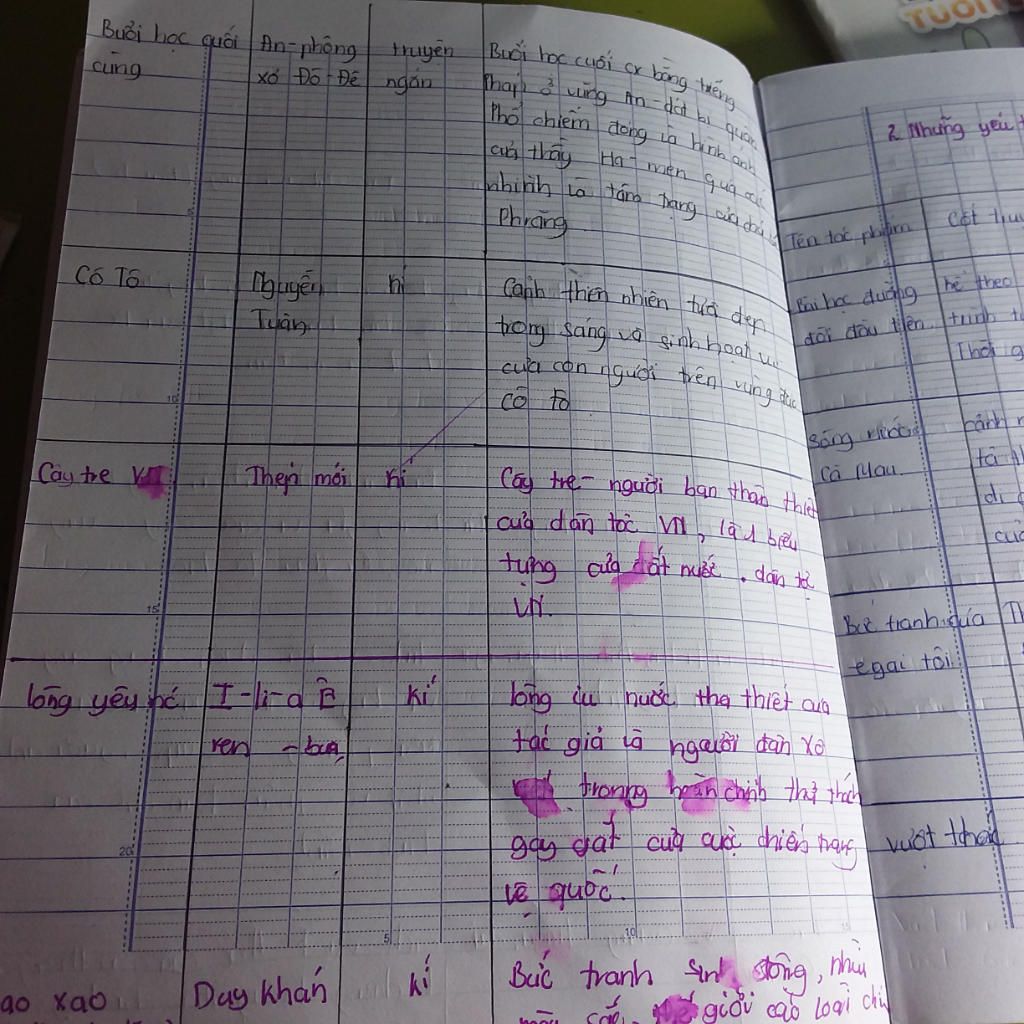 TUỔI
Buổi học quối
cùng
An-phông
xơ Đô-Đê
truyện
ngắn
Buổi học cuối cx bằng tiếng
Pháp ở vùng An-dát bị quân
Phổ chiếm đóng là hình ảnh
của thầy Ha-men qua cái
nhình là tâm trạng của
Phrăng
Cô Tô
Nguyễn
Tuân
kí
Cảnh thiên nhiên tươi đẹp
trong sáng và sinh hoạt
của con người trên vùng đảo
Cô Tô
Cây tre VN
Thép mới
kí
Cây tre - người bạn thân thiết
của dân tộc VN, là biểu
tựng của đất nước. dân tộ
VN.
lòng yêu nc
I-li-a Ê
ren - bua
kí
lòng iu nước tha thiết của
tác giả là người dân Xô
trong hoàn chỉnh thử thách
gay gắt của cuộc chiến trang
vệ quốc.
ao xao
Duy khán
kí
Bức tranh sinh động, nhìu
giới các loài chi
2. Những yếu t
Tên tác phẩm
Cốt truy
Bài học đường
đời đầu tiên
kể theo
trình t
Thời g
Sông nước
Cà Mau
cảnh
tả
di
của
Bức tranh của
e gái tôi
Th
vượt thác